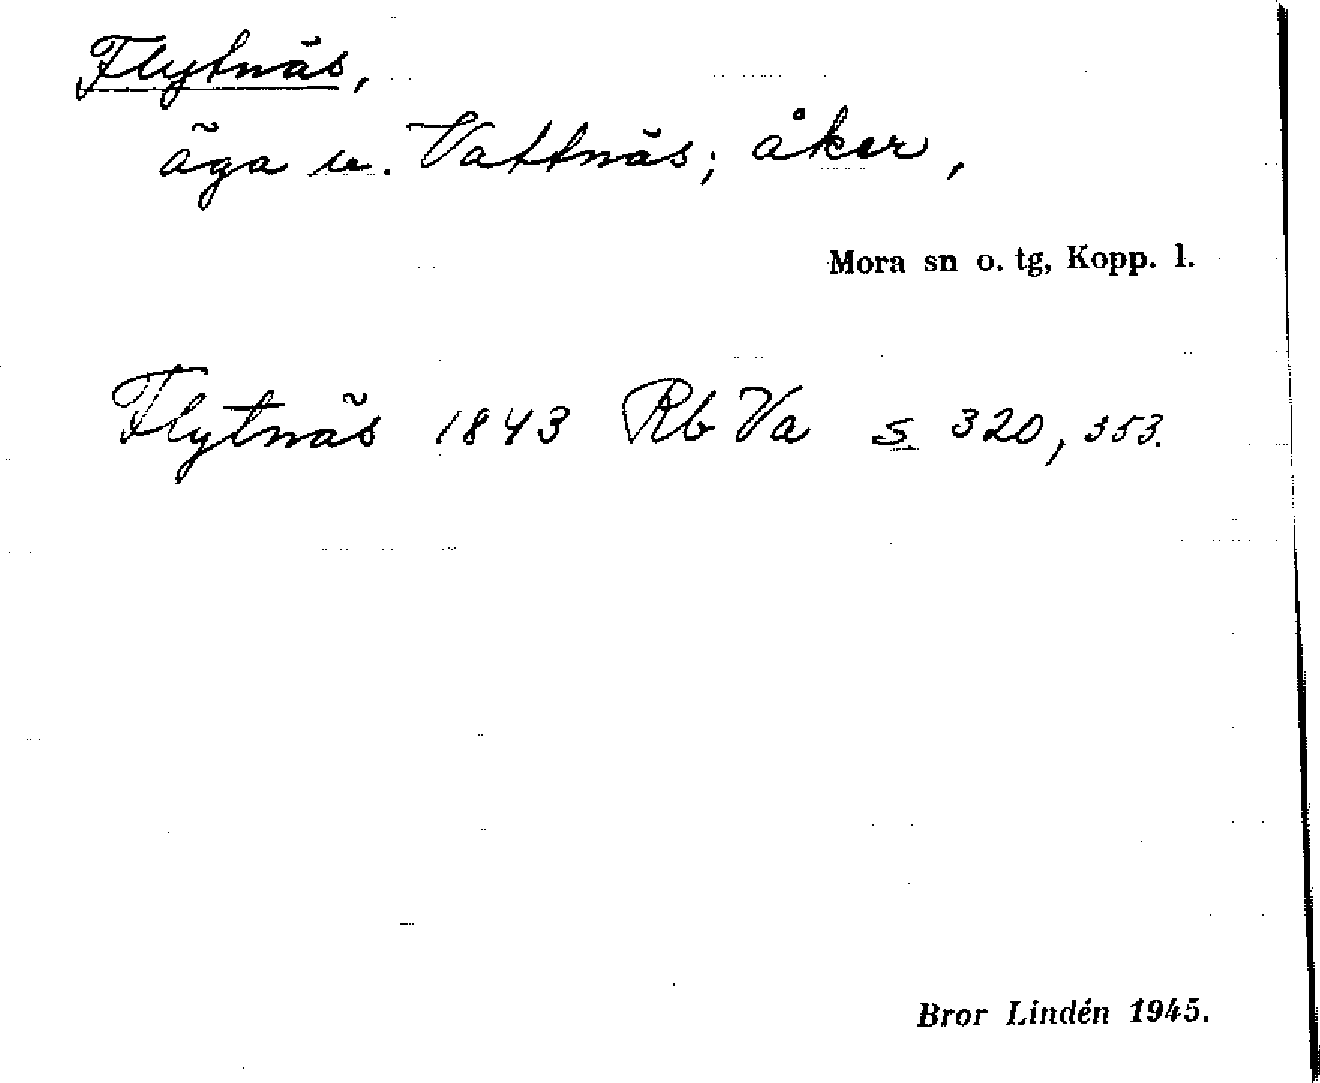 Flytnäs,
äga u. Vattnäs; åker,
Mora sn o. tg, Kopp. l.
Flytnäs 1843 Rb Va s 320, 353.
Bror Lindén 1945.